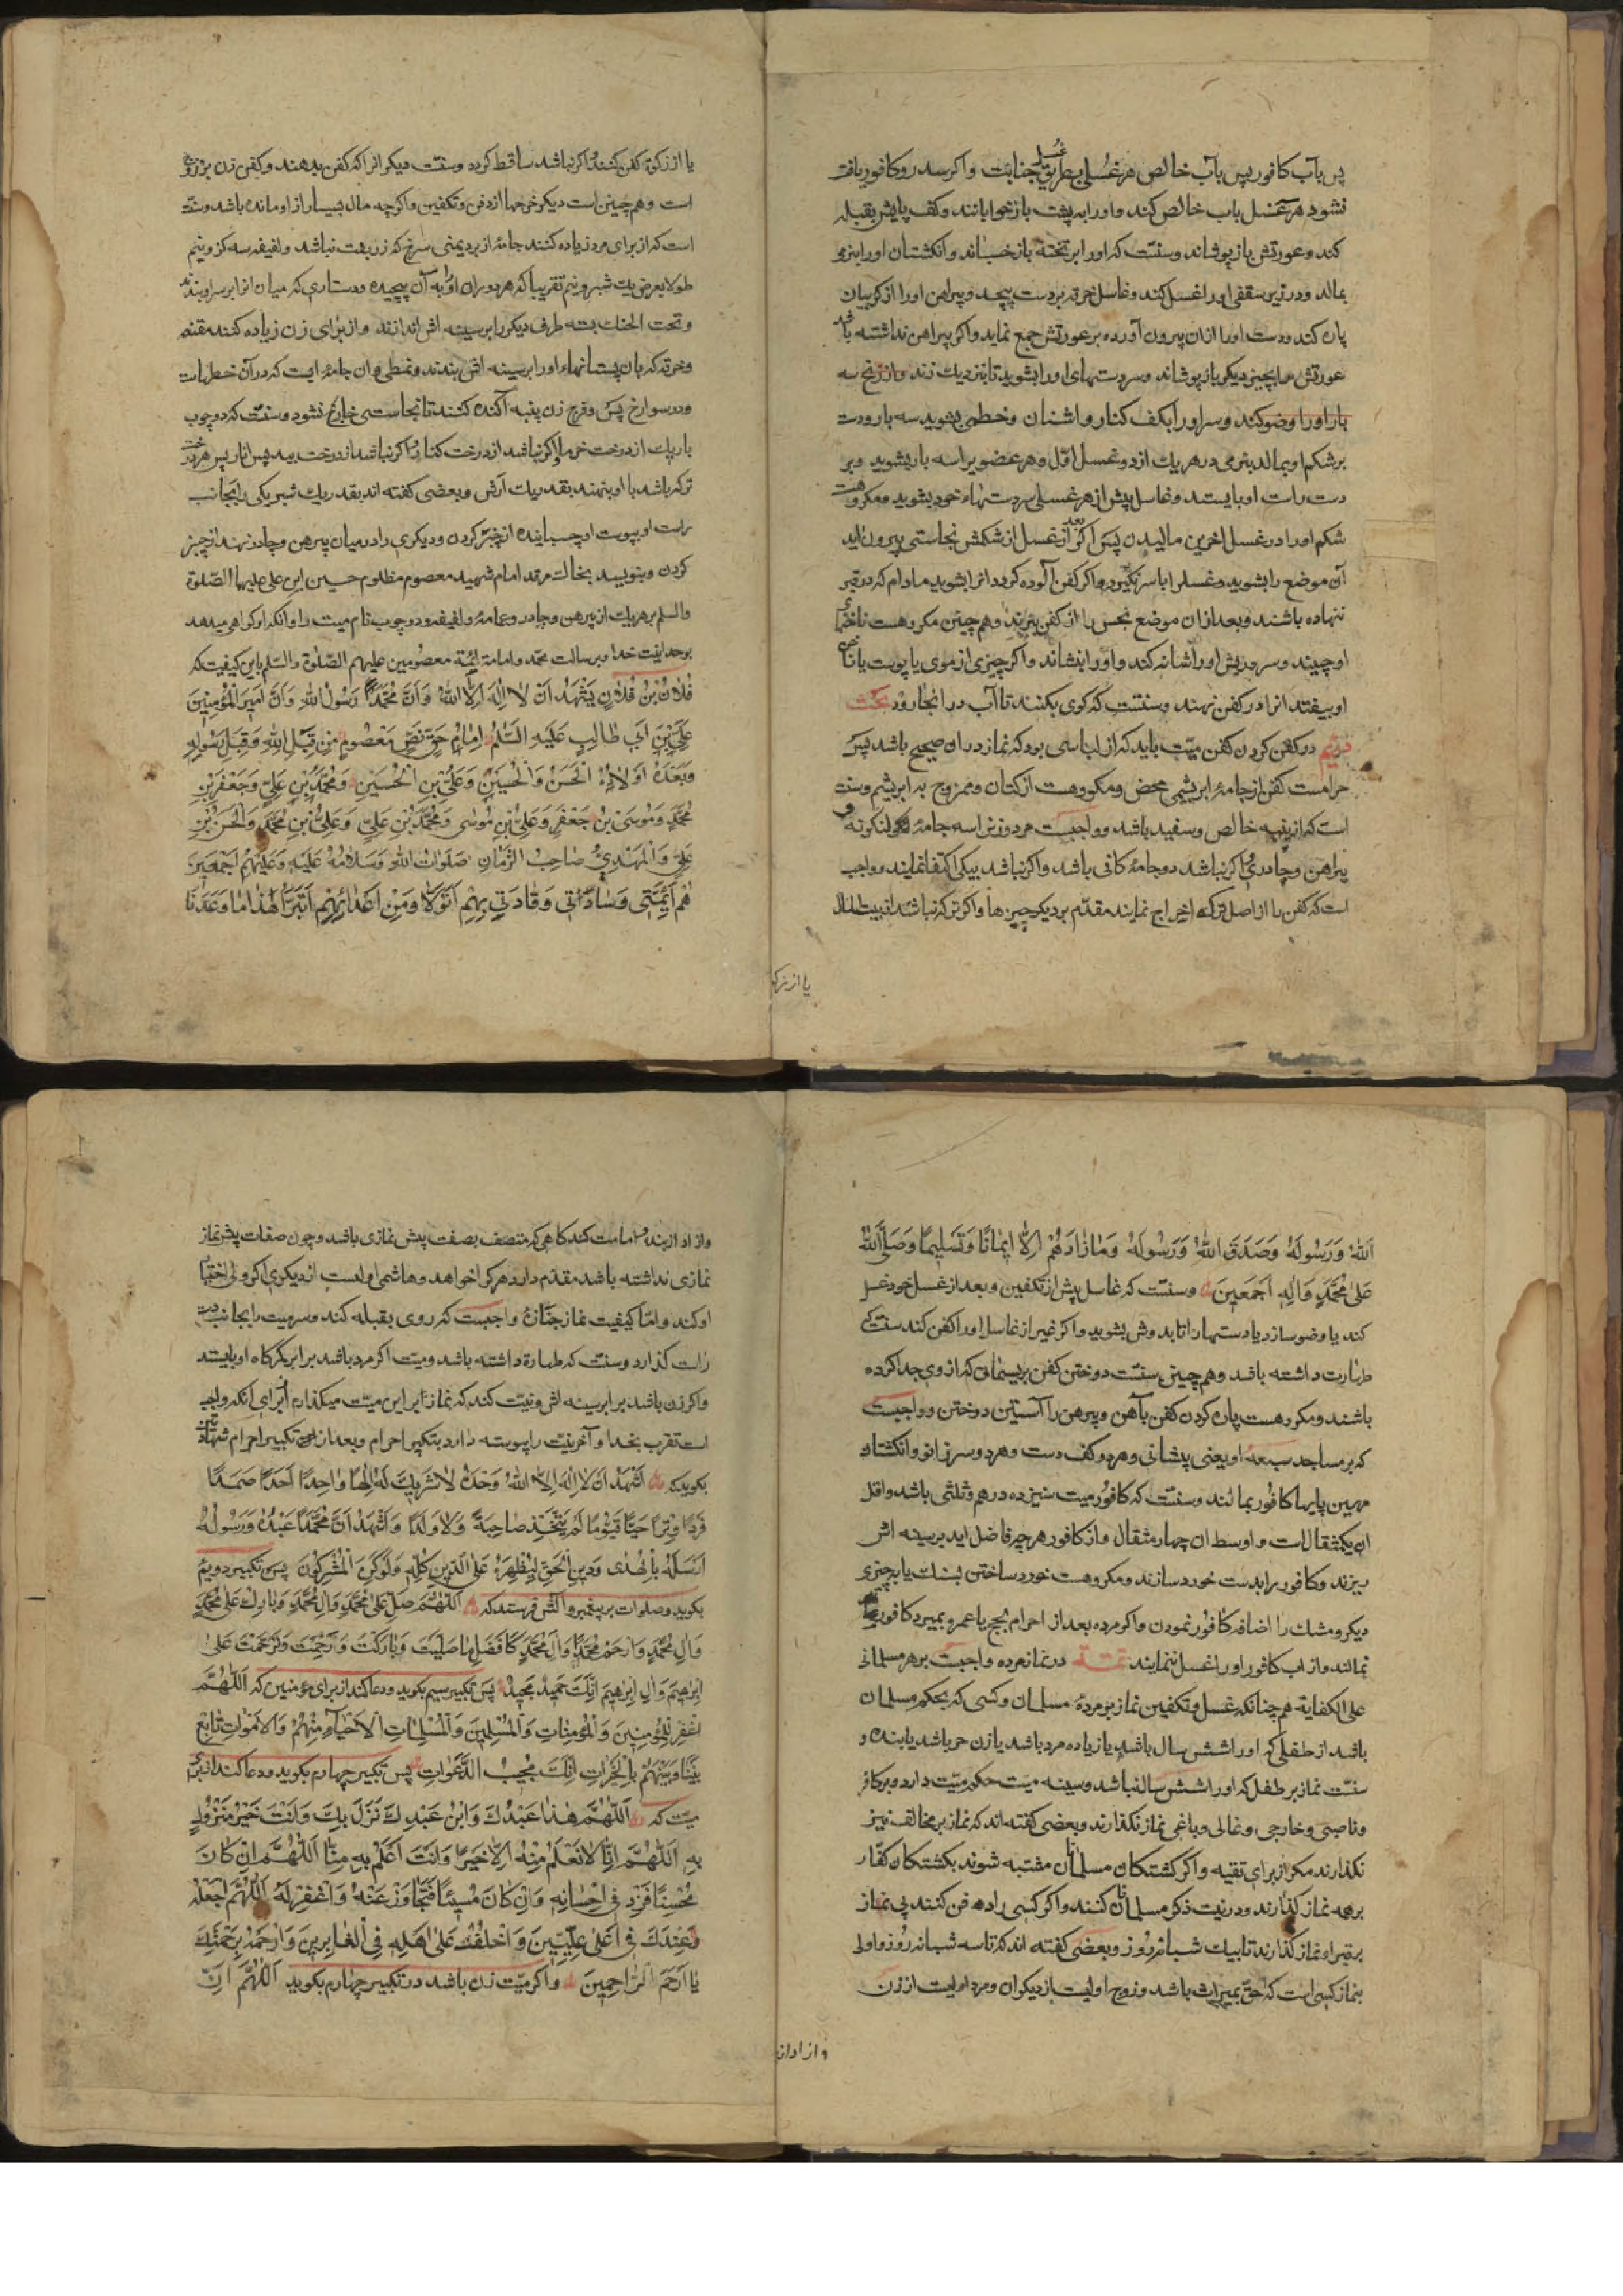 پس بآب کافور پس بآب خالص هر غسلی بطریق غسل جنابت و اکر سدر و کافور یافت
نشود هر سه غسل باب خالص کند و اورا به پشت باز خوابانند و کف پایش بقبله
کند و عورتش باز پوشاند و سنتست که اورا بر تخته باز خسباند و انکشتان اورا بنرمی
بمالد و در زیر سقفی اورا غسل کند و غاسل خرقه بردست پیچد و پیراهن اورا از کریبان
پاره کند و دست اورا ازان بیرون آورده بر عورتش جمع نماید و اکر پیراهن نداشته باشد
عورتش را بچیز دیکر باز پوشاند و سر دستهای اورا بشوید تا بنزدیك زند وازرنج سه
بار اورا وضو کند و سر اورا بکف کنار و اشنان و خطمی بشوید سه بار و دست
بر شکم او بمالد بنرمی در هر یك از دو غسل اوّل و هر عضویرا سه بار بشوید و بر
دست راست او بایستد و غاسل پیش از هر غسلی سردستهاء خود بشوید و مکروهست
شکم اورا در غسل اخرین مالیدن پس اکر بعد از غسل از شکمش نجاستی بیرون اید
آن موضع را بشوید و غسلرا با سر نکیرد و اکر کفن آلوده کردد انرا بشوید مادام که در قبر
ننهاده باشند و بعد ازان موضع نجس را از کفن ببرند و هم چنین مکروهست ناخنهای
او چیدن و سر و ریش اورا شانه کند و اورا بنشاند و اکر چیزی از موی یا پوست یا ناخن
او بیفتد انرا در کفن نهند و سنتست که کوی بکنند تا آب در انجا رود بحث
دوّیم در کفن کردن کفن میّت باید که از لباسی بود که نماز دران صحیح باشد پس
حرامست کفن از جامهٔ ابریشمی محض و مکروهست از کتان و ممزوج به ابریشم و سنت
است که از پنبه خالص و سفید باشد و واجبست مرد و زنرا سه جامهٔ لنکوته و
پیراهن و چادری و اکر نباشد دو جامهٔ کافی باشد و اکر نباشد بیکی اکتفا نمایند و واجب
است که کفن را از اصل ترکه اخراج نمایند مقدّم بر دیکر چیزها و اکر ترکه نباشد از بیت المال
یا از زکوة
یا از زکوة کفن کنند و اکر نباشد ساقط کردد و سنتست دیکرانرا که کفن بدهند و کفن زن بر زوج
است و هم چنین است دیکر خرجها از دفن و تکفین و اکرچه مال بسیار از او مانده باشد و سنّت
است که از برای مرد زیاده کنند جامهٔ از برد یمنی سرخ که زربفت نباشد و لفیفه سه کز و نیم
طولا بعرض یك شبر و نیم تقریبا که هر دو ران اورا به آن پیچیده و دستاری که میان انرا بر سر او بندند
و تحت الحنك بسته طرف دیکر را بر سینه اش اندازند و از برای زن زیاده کنند مقنعه
و خرقه که بان پستانهاء اورا بر سینه اش بندند و نمطی و ان جامهٔ ایست که در آن خطهاست
و در سوراخ پس و فرج زن پنبه آکنده کنند تا نجاستی خارج نشود و سنتست که دو چوب
باریك از درخت خرما و اکر نباشد از درخت کنار و اکر نباشد از درخت بید پس انار پس هر درخت
ترکه باشد با او بنهند بقدر یك آرش و بعضی کفته اند بقدر یك شبر یکی را بجانب
راست او بپوست او چسبانیده از چنبر کردن و دیکری را در میان پیرهن و چادر نهند از چنبر
کردن و بنویسد بخاك مرقد امام شهید معصوم مظلوم حسین ابن علی علیهما الصّلوة
والسلم بر هر یك از پیرهن و چادر و عمامهٔ و لفیفه و دو چوب نام میت را و انکه او کواهی میدهد
بوحدانیت خدا و برسالت محمّد و امامة ائمّهٔ معصومین علیهم الصّلوة والسّلم باین کیفیت که
فُلَانُ بْنُ فُلَانٍ يَشْهَدُ اَنْ لَا اِلٰهَ اِلَّا اللهُ وَاَنَّ مُحَمَّدًا رَسُولُ اللهِ وَاَنَّ اَمِيرَ الْمُؤْمِنِينَ
عَلِيَّ بْنَ اَبِي طَالِبٍ عَلَيْهِ السَّلٰمُ اِمَامُ حَقٍّ نَصٍّ مَعْصُومٌ مِنْ قِبَلِ اللهِ وَقِبَلِ رَسُولِهِ
وَبَعْدَهُ اَوْلَادُهُ الْحَسَنُ وَالْحُسَيْنُ وَعَلِيُّ بْنِ الْحُسَيْنِ وَمُحَمَّدُ بْنِ عَلِيٍّ وَجَعْفَرِ بْنِ
مُحَمَّدٍ وَمُوسَى بْنُ جَعْفَرٍ وَعَلِيُّ بْنِ مُوسٰى وَمُحَمَّدُ بْنِ عَلِيٍّ وَعَلِيُّ بْنِ مُحَمَّدٍ وَالْحَسَنُ بْنِ
عَلِيٍّ وَالْمَهْدِيُّ صَاحِبُ الزَّمَانِ صَلَوَاتُ اللهِ وَسَلَامُهُ عَلَيْهِ وَعَلَيْهِمْ اَجْمَعِينَ
هُمْ اَئِمَّتِي وَسَادَاتِي وَقَادَتِي بِهِمْ اَتَوَلَّا وَمِنْ اَعْدَائِهِمْ اَتَبَرَّأُ هٰذَا مَا وَعَدَنَا
اَللهُ وَرَسُولُهُ وَصَدَقَ اللهُ وَرَسُولُهُ وَمَا زَادَهُمْ اِلَّا اِيمَانًا وَتَسْلِيمًا وَصَلَّى اللهُ
عَلٰى مُحَمَّدٍ وَاٰلِهِ اَجْمَعِينَ و سنتست که غاسل پیش از تکفین و بعد از غسل خود غسل
کند یا وضو سازد یا دستهارا تا بدوش بشوید و اکر غیر از غاسل اورا کفن کند سنتست که
طهارت داشته باشد و هم چنین سنتست دوختن کفن بریسمانی که از وی جدا کرده
باشند و مکروهست پاره کردن کفن بآهن و پیرهن را آستین دوختن و واجبست
که بر مساجد سبعه او یعنی پیشانی و هر دو کف دست و هر دو سر زانو و انکشتان
مهین پایها کافور بمالند و سنتست که کافور میت سیزده درهم و ثلثی باشد و اقل
ان یکمثقال است و اوسط ان چهار مثقال و از کافور هر چه فاضل اید بر سینه اش
ریزند و کافور را بدست خورد سازند و مکروهست خورد ساختن بسنك یا بچیزی
دیکر و مشك را اضافه کافور نمودن و اکر مرده بعد از احرام بحج یا عمره بمیرد کافور
نمالند و از اب کافور اورا غسل ننمایند تتمّه در نماز مرده واجبست بر هر مسلمانی
علی الکفایة هم چنانکه غسل و تکفین نماز بر مردهٔ مسلمان و کسی که بحکم مسلمان
باشد از طفلی که اورا شش سال باشد یا زیاده مرد باشد یا زن حر باشد یا بنده و
سنّت نماز بر طفل که اورا شش سال نباشد و سینه میت حکم میّت دارد و بر کافر
و ناصبی و خارجی و غالی و باغی نماز نکذارند و بعضی کفته اند که نماز بر مخالف نیز
نکذارند مکر از برای تقیه و اکر کشتکان مسلمانان مشتبه شوند بکشتکان کفّار
بر همه نماز کذارند و در نیت ذکر مسلمانان کنند و اکر کسی را دفن کنند بی نماز
بر قبر او نماز کذارند تا بیك شبانه روز و بعضی کفته اند که تا سه شبانه روز و اولی
بنماز کسی است که احقّ بمیراث باشد و زوج اولیست از دیکران و مرد اولیست از زن
و ازاد از
و ازاد از بنده و امامت کند کاهی که متصف بصفت پیش نمازی باشد و چون صفات پیش نماز
نمازی نداشته باشد مقدّم دارد هر کرا خواهد و هاشمی اولیست از دیکری اکر ولی اختیار
او کند و امّا کیفیت نماز جنازهٔ واجبست که روی بقبله کند و سر میت را بجانب دست
راست کذارد و سنتست که طهارة داشته باشد و میت اکر مرد باشد برابر کمرکاه او بایستد
و اکر زن باشد برابر سینه اش و نیت کند که نماز بر این میّت میکذارم برای انکه واجب
است تقرب بخدا و آخر نیت را پیوسته دارد بتکبیر احرام و بعد از تکبیر احرام شهادتین
بکوید که اَشْهَدُ اَنْ لَا اِلٰهَ اِلَّا اللهُ وَحْدَهُ لَا شَرِيكَ لَهُ اِلٰهًا وَاحِدًا اَحَدًا صَمَدًا
فَرْدًا وِتْرًا حَيًّا قَيُّومًا لَمْ يَتَّخِذْ صَاحِبَةً وَلَا وَلَدًا وَاَشْهَدُ اَنَّ مُحَمَّدًا عَبْدُهُ وَرَسُولُهُ
اَرْسَلَهُ بِالْهُدٰى وَدِينِ الْحَقِّ لِيُظْهِرَهُ عَلَى الدِّينِ كُلِّهِ وَلَوْ كَرِهَ الْمُشْرِكُونَ پس تکبیر دویم
بکوید و صلوات بر پیغمبر و الش فرستد که اَللّٰهُمَّ صَلِّ عَلٰى مُحَمَّدٍ وَاٰلِ مُحَمَّدٍ وَبَارِكْ عَلٰى مُحَمَّدٍ
وَاٰلِ مُحَمَّدٍ وَارْحَمْ مُحَمَّدًا وَاٰلَ مُحَمَّدٍ كَاَفْضَلِ مَا صَلَّيْتَ وَبَارَكْتَ وَتَرَحَّمْتَ عَلٰى
اِبْرٰهِيمَ وَاٰلِ اِبْرٰهِيمَ اِنَّكَ حَمِيدٌ مَجِيدٌ پس تکبیر سیم بکوید و دعا کند از برای مؤمنین که اَللّٰهُمَّ
اغْفِرْ لِلْمُؤْمِنِينَ وَالْمُؤْمِنَاتِ وَالْمُسْلِمِينَ وَالْمُسْلِمَاتِ الْاَحْيَاءِ مِنْهُمْ وَالْاَمْوَاتِ تَابِعْ
بَيْنَنَا وَبَيْنَهُمْ بِالْخَيْرَاتِ اِنَّكَ مُجِيبُ الدَّعَوَاتِ پس تکبیر چهارم بکوید و دعا کند از برای
میّت که اَللّٰهُمَّ هٰذَا عَبْدُكَ وَابْنُ عَبْدِكَ نَزَلَ بِكَ وَاَنْتَ خَيْرُ مَنْزُولٍ
بِهِ اَللّٰهُمَّ اِنَّا لَا نَعْلَمُ مِنْهُ اِلَّا خَيْرًا وَاَنْتَ اَعْلَمُ بِهِ مِنَّا اَللّٰهُمَّ اِنْ كَانَ
مُحْسِنًا فَزِدْ فِي اِحْسَانِهِ وَاِنْ كَانَ مُسِيئًا فَتَجَاوَزْ عَنْهُ وَاغْفِرْ لَهُ اَللّٰهُمَّ اجْعَلْهُ
عِنْدَكَ فِي اَعْلٰى عِلِّيِّينَ وَاخْلُفْ عَلٰى اَهْلِهِ فِي الْغَابِرِينَ وَارْحَمْهُ بِرَحْمَتِكَ
يَا اَرْحَمَ الرَّاحِمِينَ و اکر میّت زن باشد در تکبیر چهارم بکوید اَللّٰهُمَّ اِنَّ